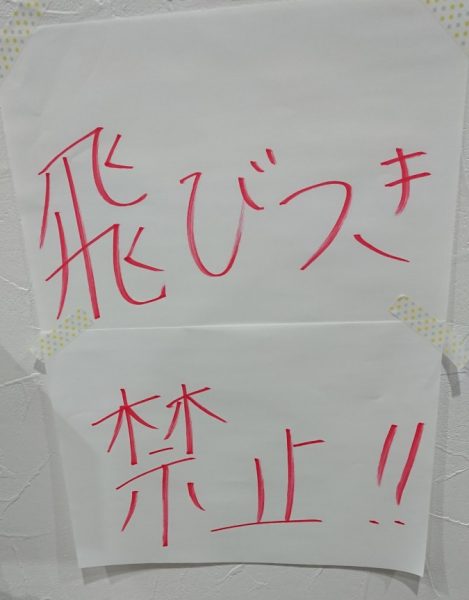 飛びつき
禁止!!